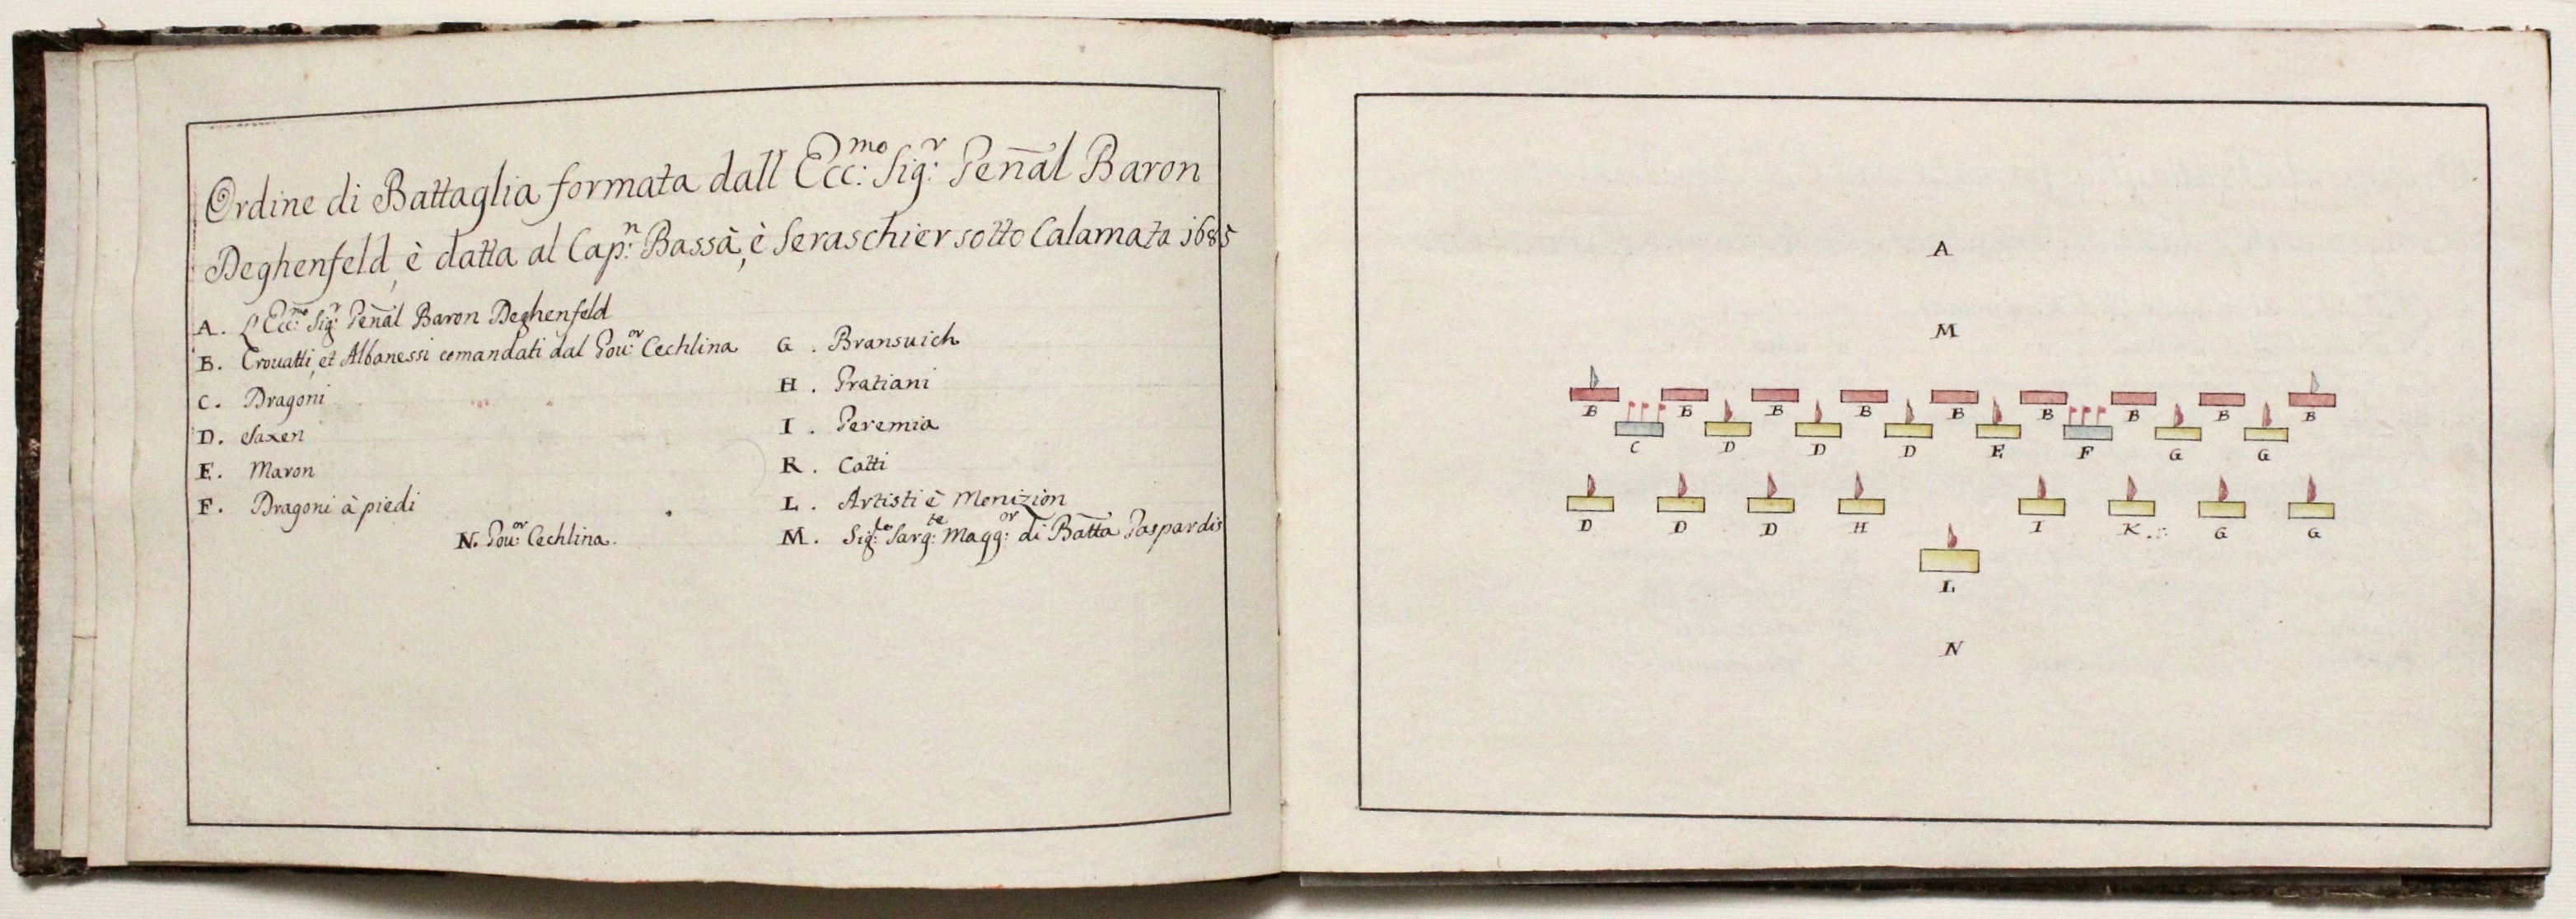 Ordine di Battaglia formata dall Ecc:mo Sig:r Gen̅al Baron
Deghenfeld, è datta al Cap:n Bassà, è Seraschier sotto Calamata 1685
A. L'Ecc:mo Sig:r Gen̅al Baron Deghenfeld
B. Crouatti, et Albanessi comandati dal Gou:or Cechlina
C. Dragoni
D. Saxen
E. Maron
F. Dragoni à piedi
N. Gou:or Cechlina.
G. Bransuich
H. Gratiani
I. Geremia
K. Catti
L. Artisti è Monizion
M. Sig:le Sarg:te Magg:or di Batta̅ Gaspardis
A
M
B B B B B B B B B
C D D D E F G G
D D D H I K G G
L
N